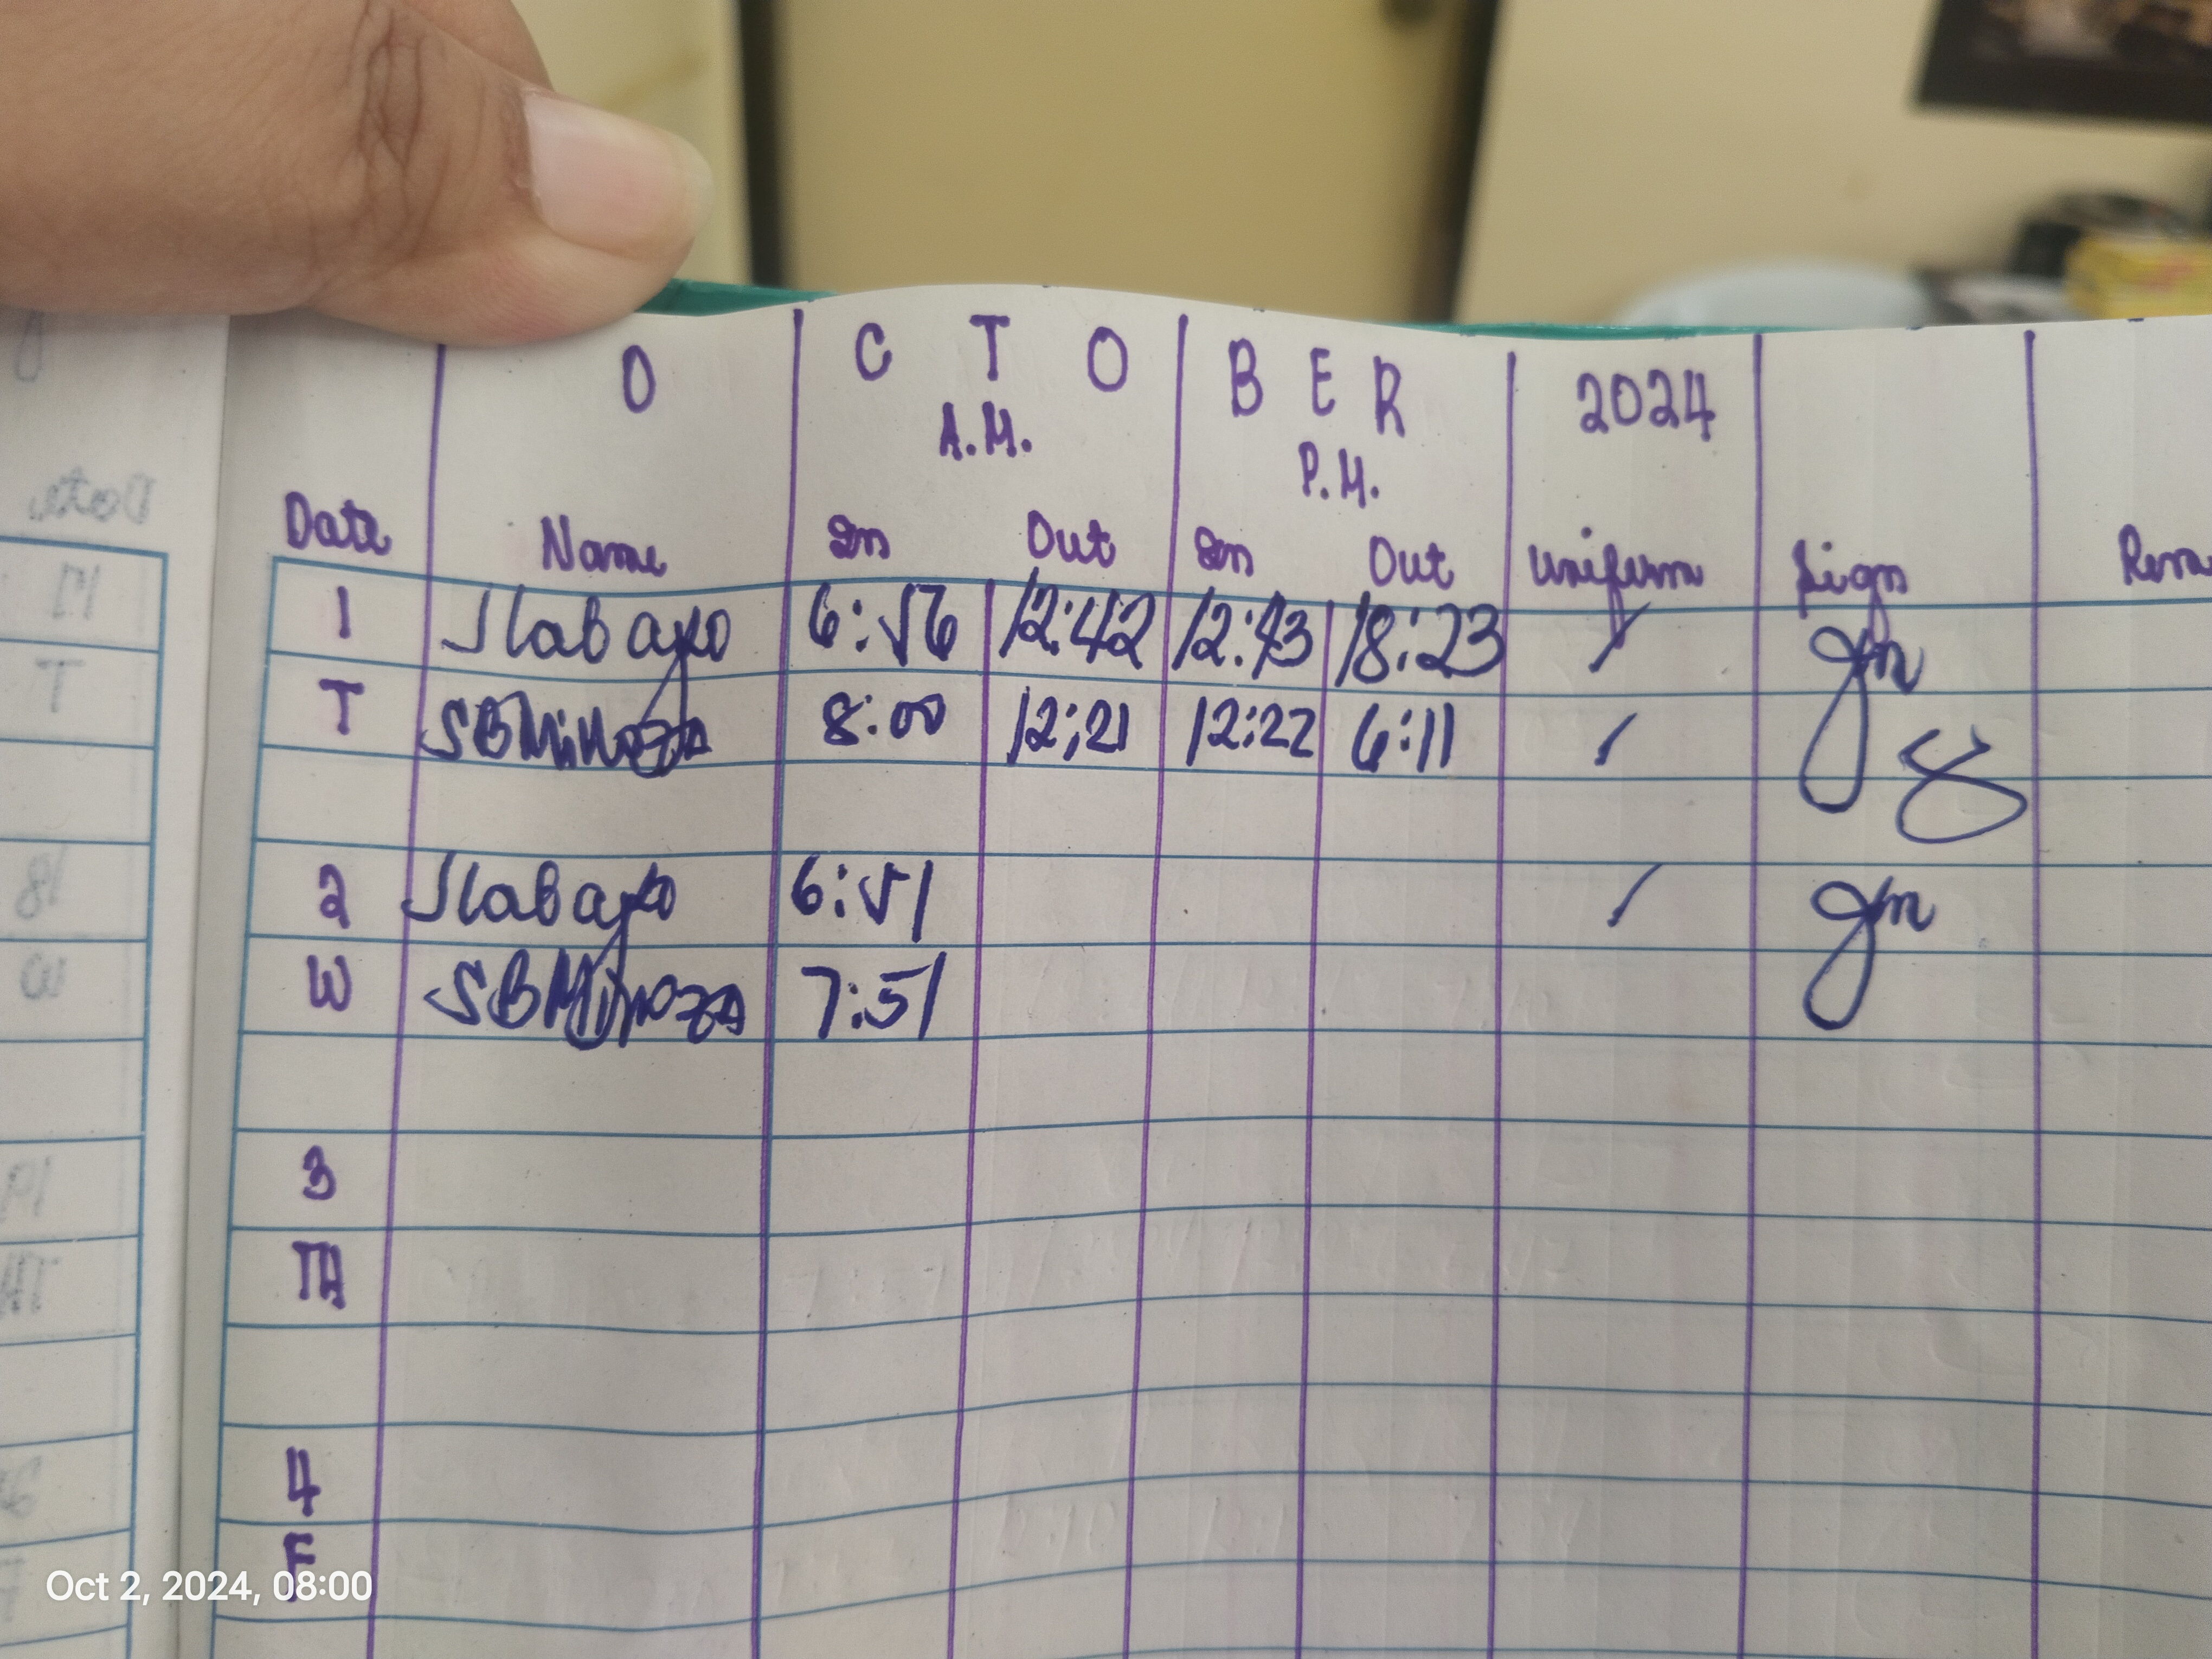 O C T O B E R 2024
A.M. P.M.
Date Name In Out In Out Uniform Sign
1 Jlabayo 6:56 12:42 12:43 18:23 /
T SBMiñoza 8:00 12:21 12:22 6:11 /
2 Jlabayo 6:51 /
W SBMiñoza 7:51
3
TH
4
F
Oct 2, 2024, 08:00